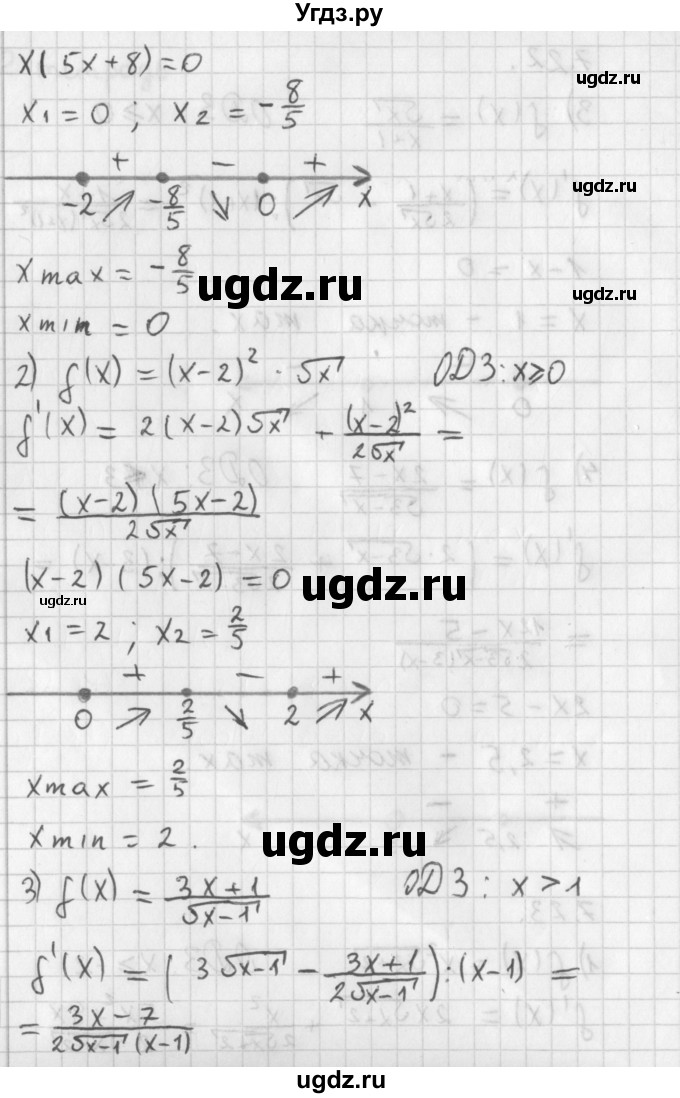 Угдз.ру
x(5x+8)=0
ugdz.ru
x₁=0; x₂=-8/5
+ - +
-2 -8/5 0 x
x max = -8/5
ugdz.ru
x min = 0
2) f(x) = (x-2)² · √x ОДЗ: x≥0
f'(x) = 2(x-2)√x + (x-2)²/2√x =
= (x-2)(5x-2)/2√x
(x-2)(5x-2)=0
ugdz.ru
ugdz.ru
x₁=2; x₂=2/5
+ - +
0 2/5 2 x
x max = 2/5
x min = 2.
ugdz.ru
3) f(x) = 3x+1/√x-1 ОДЗ: x>1
f'(x) = (3√x-1 - 3x+1/2√x-1):(x-1) =
= 3x-7/2√x-1(x-1)
ugdz.ru
ugdz.ru